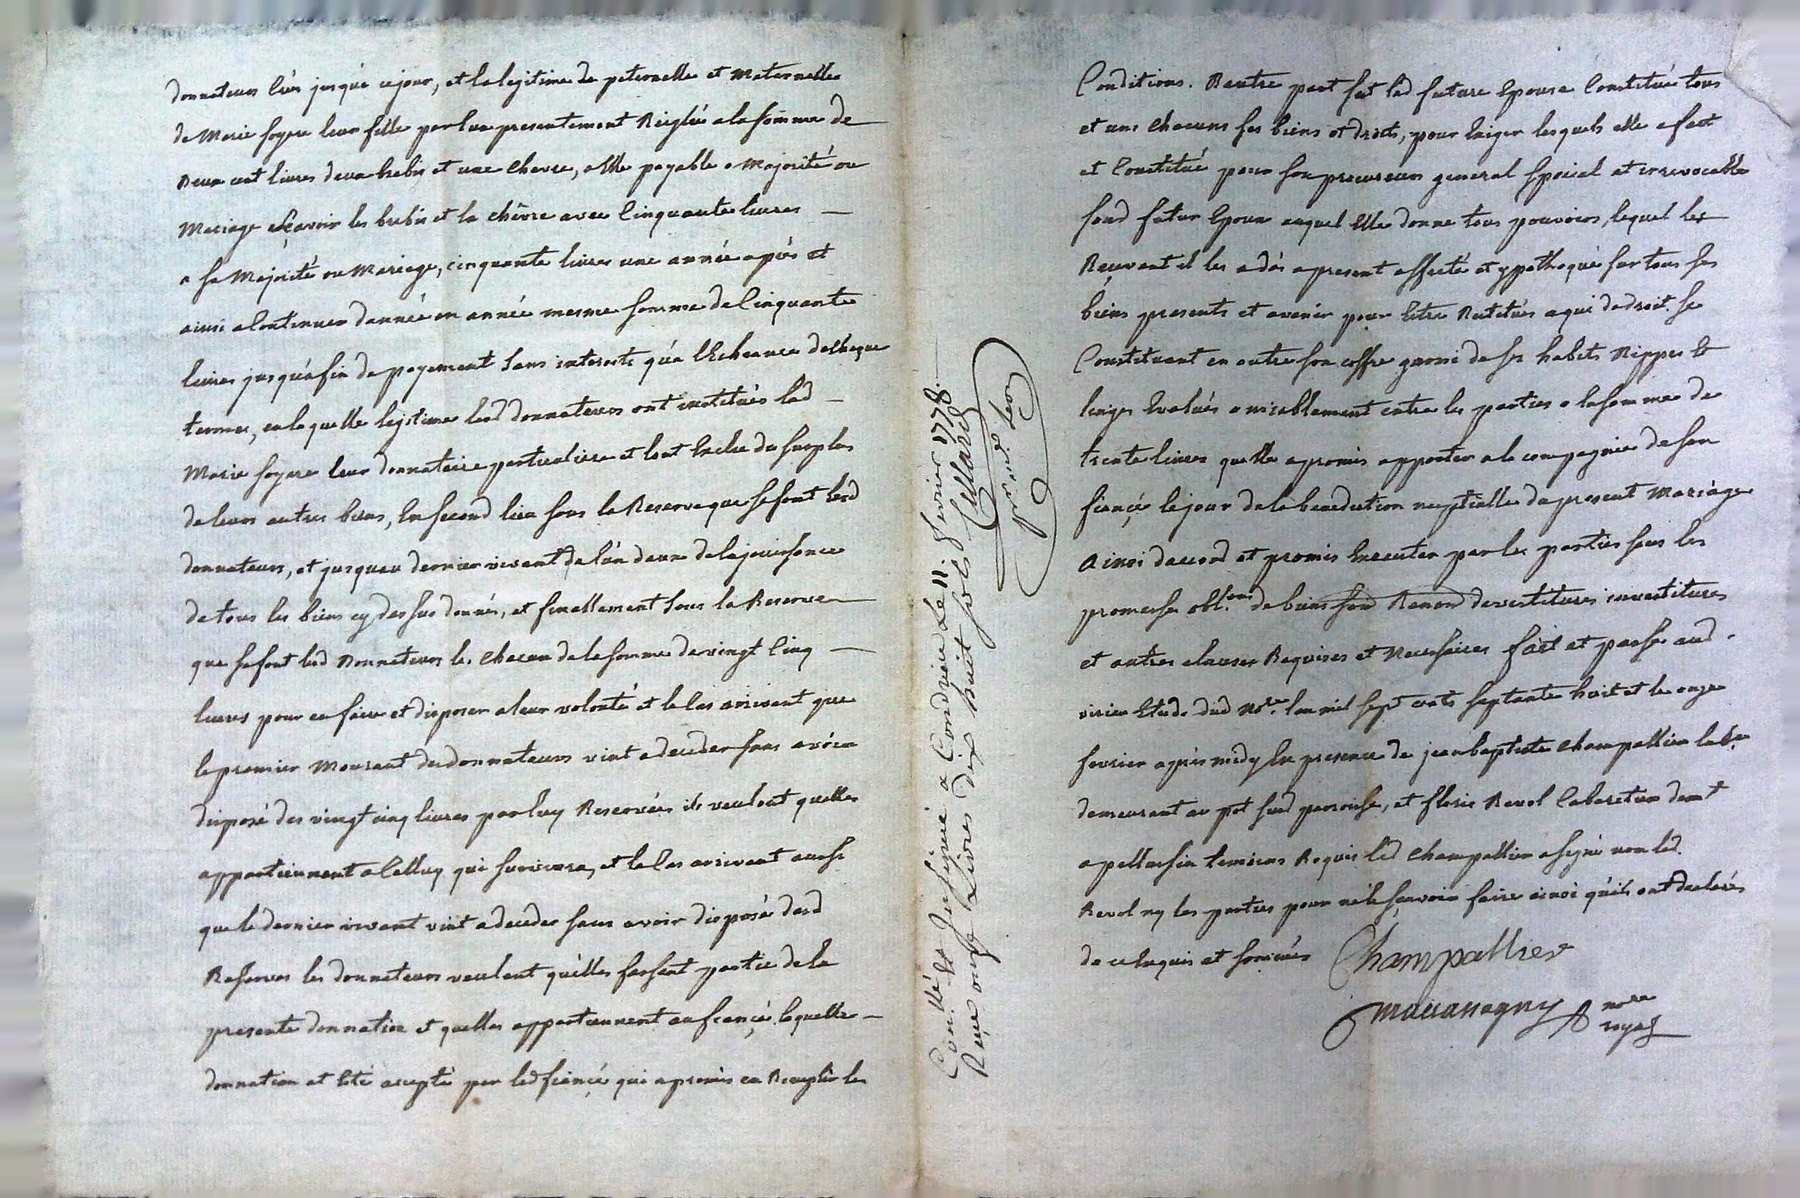 donnateurs liés jusqu'à ce jour, et la legitime de paternelle et Maternelle
de Marie foyere leur fille par eux presentement Reiglée a la somme de
Deux cent livres deux brebis et une chevre, a Elle payable a Majorité ou
Mariage sçavoir les brebis et la chévre avec Cinquante livres
a sa Majorité ou Mariage, cinquante livres une année après et
ainsi a Continuer d'année en année mesme somme de Cinquante
livres jusqu'à fin de payement sans interests qu'a l'Echeance de Chaque
terme, en laquelle legitime lesd donnateurs ont institués lad
Marie foyere leur donnataire particuliere et l'ont Exclue du surplus
de leurs autres biens, En second lieu sous la Reserve que se font lesd
donnateurs, et jusqu'au dernier vivant de l'un d'eux de la jouissance
de tous les biens cy dessus donnés, et finallement sous la Reserve
que se font lesd Donnateurs de Chacun de la somme de vingt Cinq
livres pour en faire et disposer a leur volonté et le Cas arrivant que
le premier Mourant desd donnateurs vint a deceder sans avoir
disposé des vingt cinq livres par luy Reservées ils veulent quelles
appartiennent a Celluy qui survivra, et le Cas arrivant aussi
que le dernier vivant vint a deceder sans avoir disposé desd
Reserves les donnateurs veulent qu'elles fassent partie de la
presente donnation et quelles appartiennent au fiançé laquelle
donnation a Eté acceptée par led fiançé qui a promis en Remplir les
Con.llé et Insinué a Condrieu Le 11. Fevrier 1778.
Reçu onze Livres dix huit sols Cuillard
Conditions. D'autre part s'est lad future Epouse Constituée tous
et uns chacuns ses biens et droits, pour Exiger lesquels elle a fait
et Constitué pour son procureur general special et irrevocable
sond futur Epoux auquel Elle donne tous pouvoirs, lequel les
Recevant il les a dès a present affecté et ypothequé sur tous ses
biens presents et avenir pour Estre Restitués a qui de droit. Se
Constituant en outre son coffre garni de ses habits Nippes et
linges Evalués amiablement entre les parties a la somme de
trente livres qu'elle a promis apporter a la compagnie de son
fiançé le jour de la benediction nuptialle du present Mariage
Ainsi d'accord et promis Executer par les parties sous les
promesses obl.ons de biens soum Renon devestitures investitures
et autres clauses Requises et Necessaires fait et passé aud
virieu Etude dud No.re l'an mil sept cents septante huit et le onze
fevrier après midy En presence de jean baptiste Champallier lab.r
demeurant au pot susd parroisse, et fleris Revol Cabaretier dem.t
a pellussin temoins Requis led Champallier a signé non led.
Revol ny les parties pour ne le sçavoir faire ainsi qu'ils ont declarés
de ce Enquis et sommés Champallier
Mauanagny no.re
royal